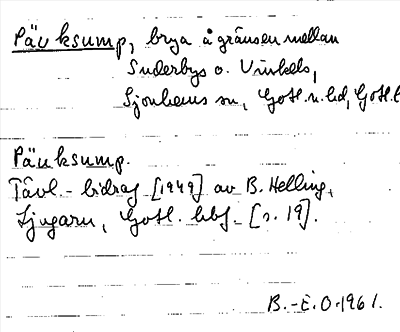 Pävksump, brya å gränsen mellan
Suderbys o. Vinkels,
Sjonhems sn, Gotl. n. hd, Gotl. l
Päuksump.
Tävl.-bidrag [1949] av B. Helling,
Ljugarn, Gotl. [s. 19].
B.-E. O. 1961.